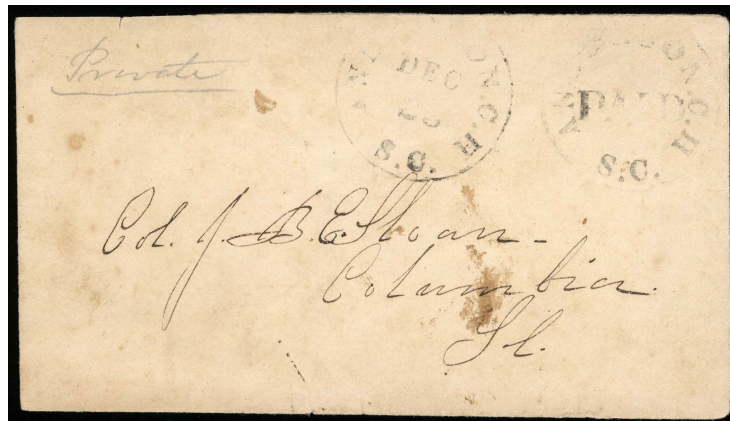 Private
DEC
ON C.H.
S.C.
ON C.H.
PAID
S.C.
Col. J. B. E. Sloan -
Columbia.
S.C.